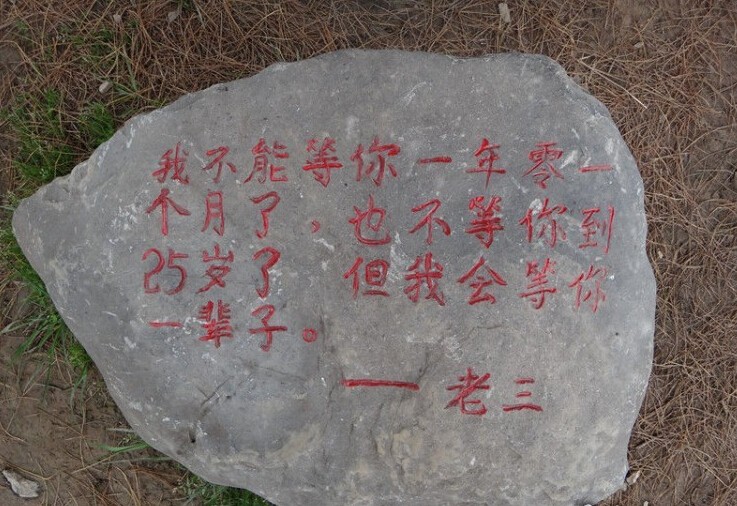 我不能等你一年零一
个月了，也不等你到
25岁了 但我会等你
一辈子。
—老三